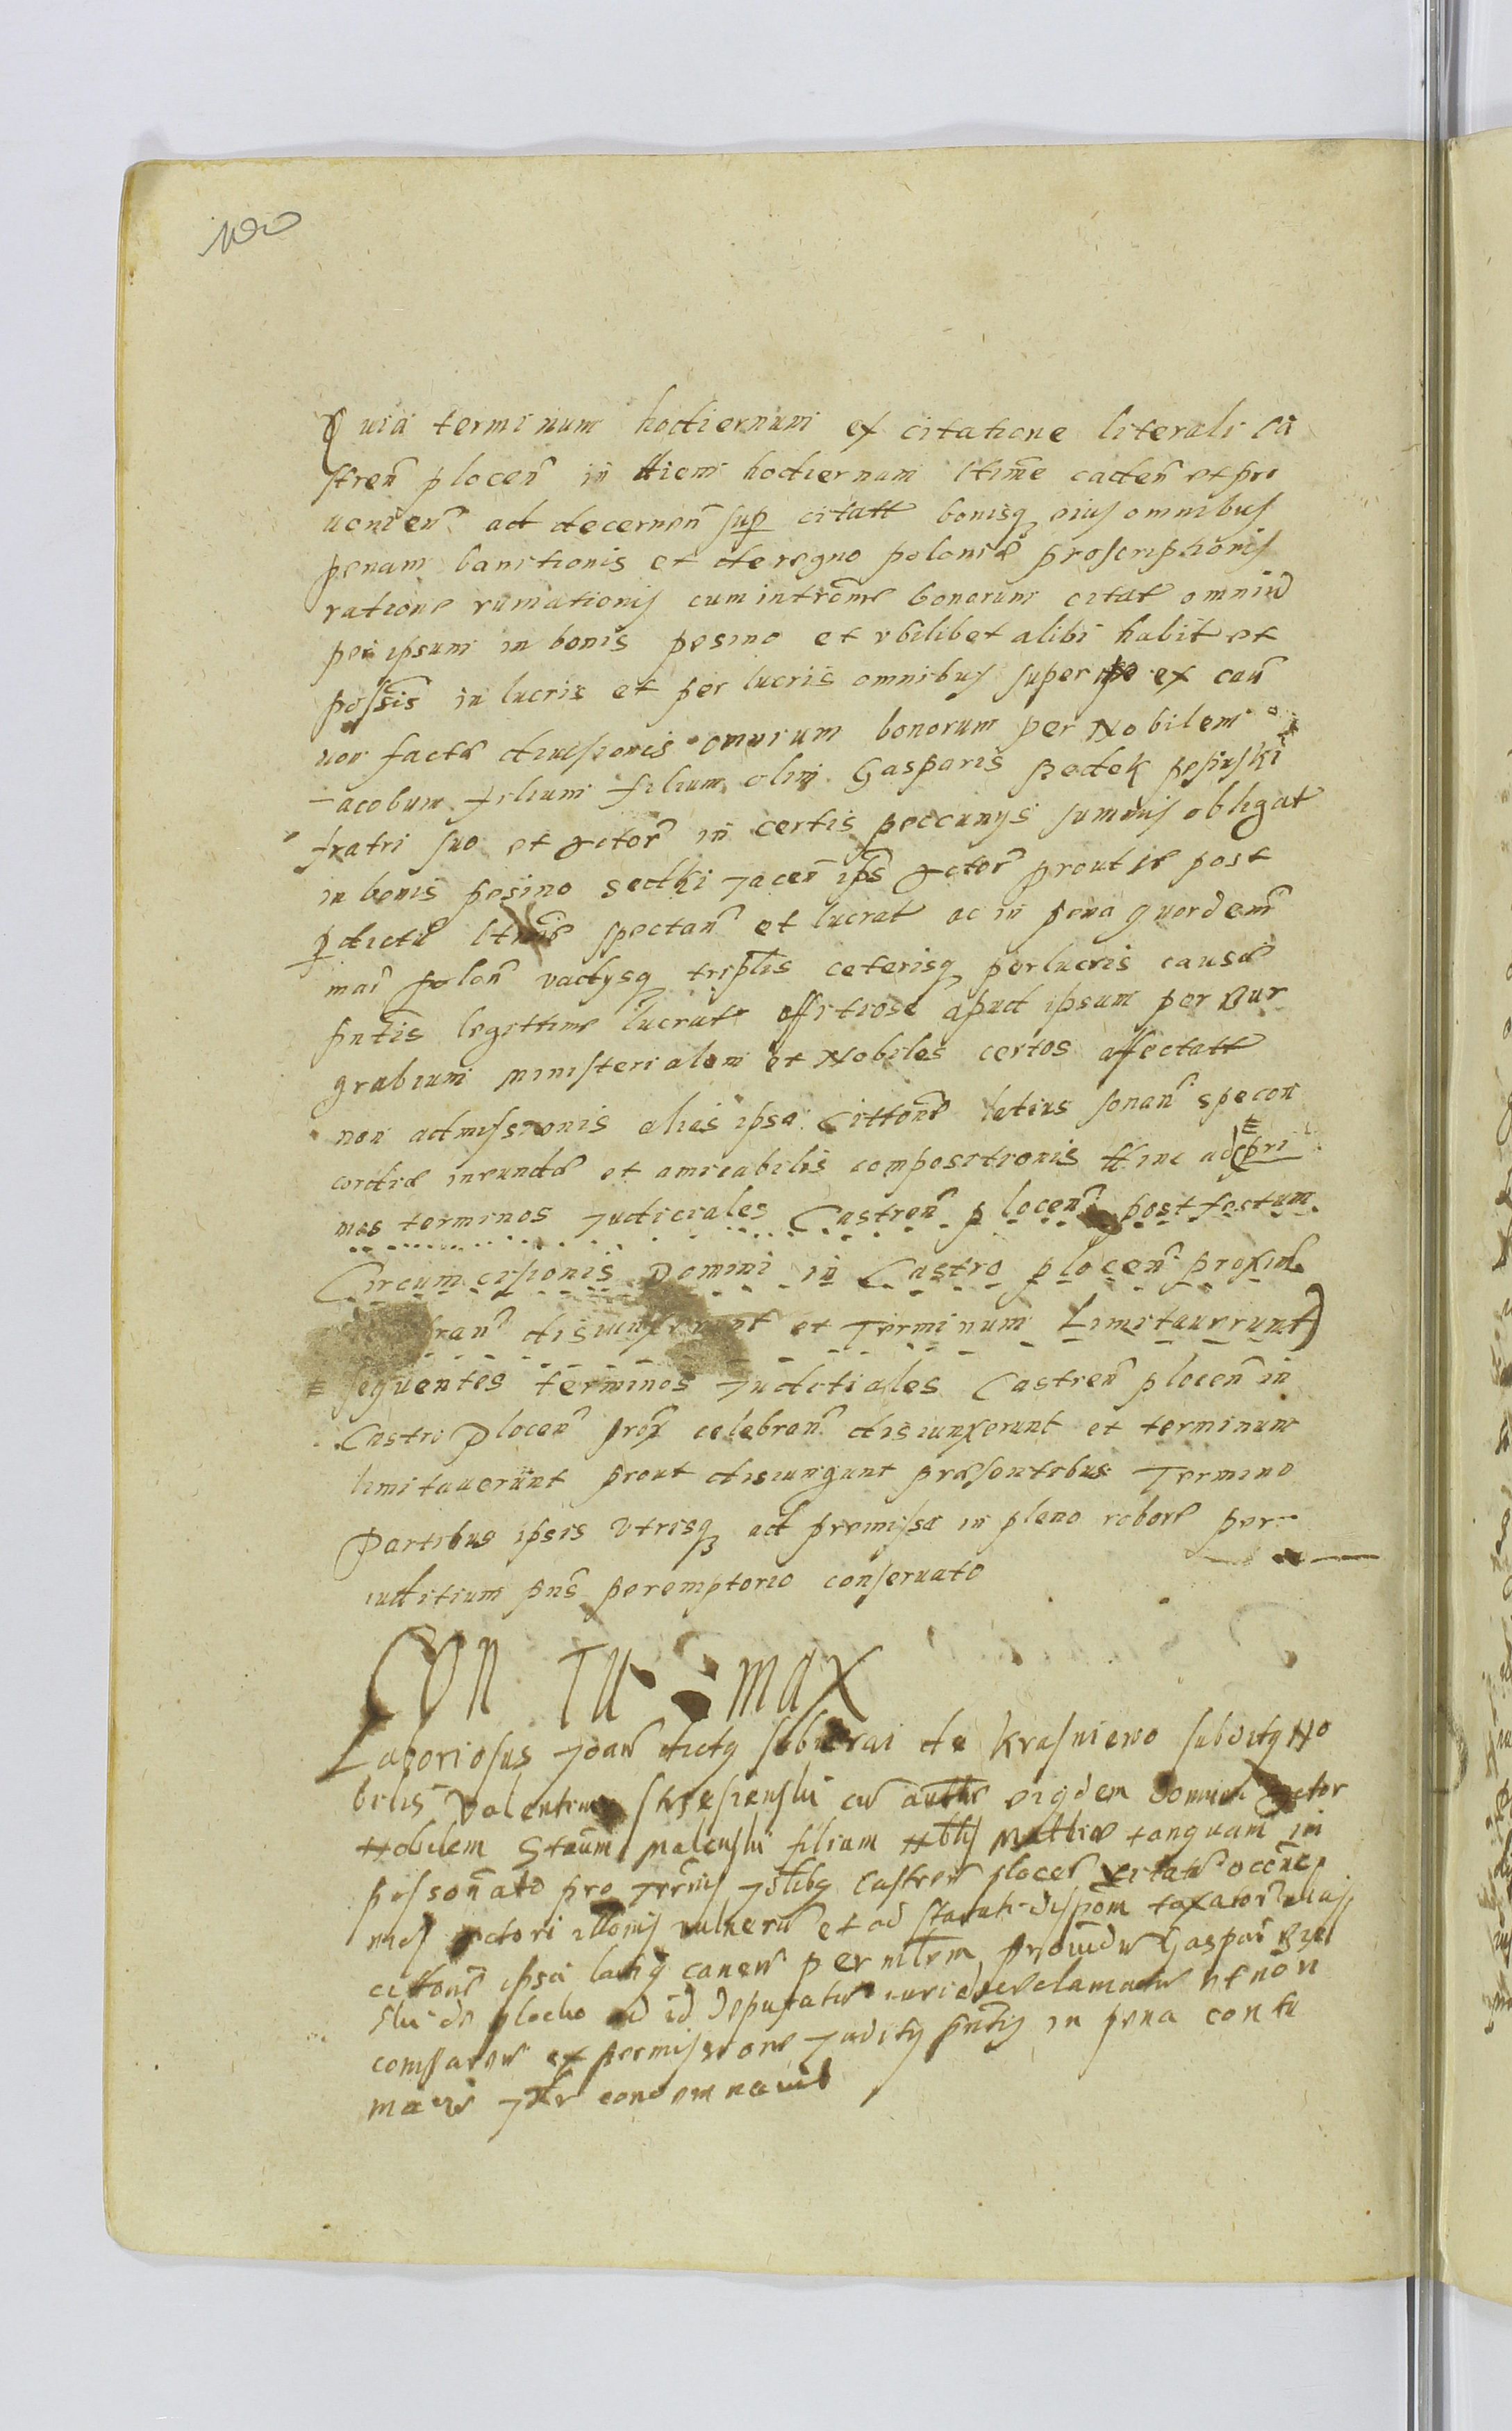 Quia terminum hodiernum ex citatione literali Ca
stren̄ plocen̄ in diem hodiernam ltime caden̄ et pro
uenien̄ ad decernen̄ sup citatt bonisq eius omnibus
penam banitionis et de regno poloniæ proscriptionis
ratione rumationis cum intrōme bonorum citat omniū
per ipsum in bonis pesino et vbilibet alibi habit et
possīs in lucris et per lucris omnibus super ex cau̅
non factæ diuisionis omnium bonorum per Nobilem
Jacobum filium olim Gasparis sedek pesinski
fratri suo et actor̄ in certis peccunys summis obligat
in bonis pesino sedki Jacen̄ ips̄ actor̄ prout post
pdictū spectan̄ et lucrat ac in pena quordem̄
mar̄ polon̄ vadysq triplis ceterisq perlucris causæ
pn̄tis legittime lucrat offitiose apud ipsum per Bur
grabium ministerialem et Nobiles certos affectatt
non admissionis alias ipsa Cittone latius sonan̄ spe con
cordiæ ineundæ et amicabilis compositionis hinc ad pri
mos terminos Judiciales Castren̄ plocen̄ post festum
Circumcisionis Domini in Castro plocen̄ proxim
bran̄ disiunxerunt et Terminum Limitauerunt)
sequentes terminos Juditiales Castren̄ plocen̄ in
Castro Plocen̄ prox̄ celebran̄ disiunxerunt et terminum
limitauerunt prout disiungunt præsentibus Termino
Partibus ipsis vtrisq ad premissa in pleno robore per
iuditium pn̄s peremptorio conseruato
CON TU MAX
Laboriosus Joan̄ dictq de Krasniewo subditq No
bilis Valentin cu̅ eiqdem domini actor
Nobilem Stan̄m filium Nblis tanquam im
possonato pro Jrmis Castren̄ plocen̄ citatu̅ occ̄ne
actori vulneru̅ et ad statuti dispōm taxator alias
cittone ipsa latiq canen̄ per mlrem prouidu̅ Gaspar
ski de plocko ad id deputatu̅ iuridice clamatu̅ et non
comparen̄ ex permissione Judity pn̄tis in pena contu
macie condemnauit